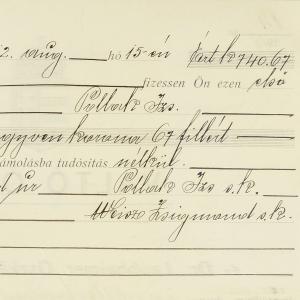 2. aug. hó 15-én Ért. k 740.67
fizessen Ön ezen első
Pollak Izs.
egyven korona 67 fillért
ámolásba tudósítás nélkül.
úr Pollak Izs s.k.
Weisz Zsigmond s.k.